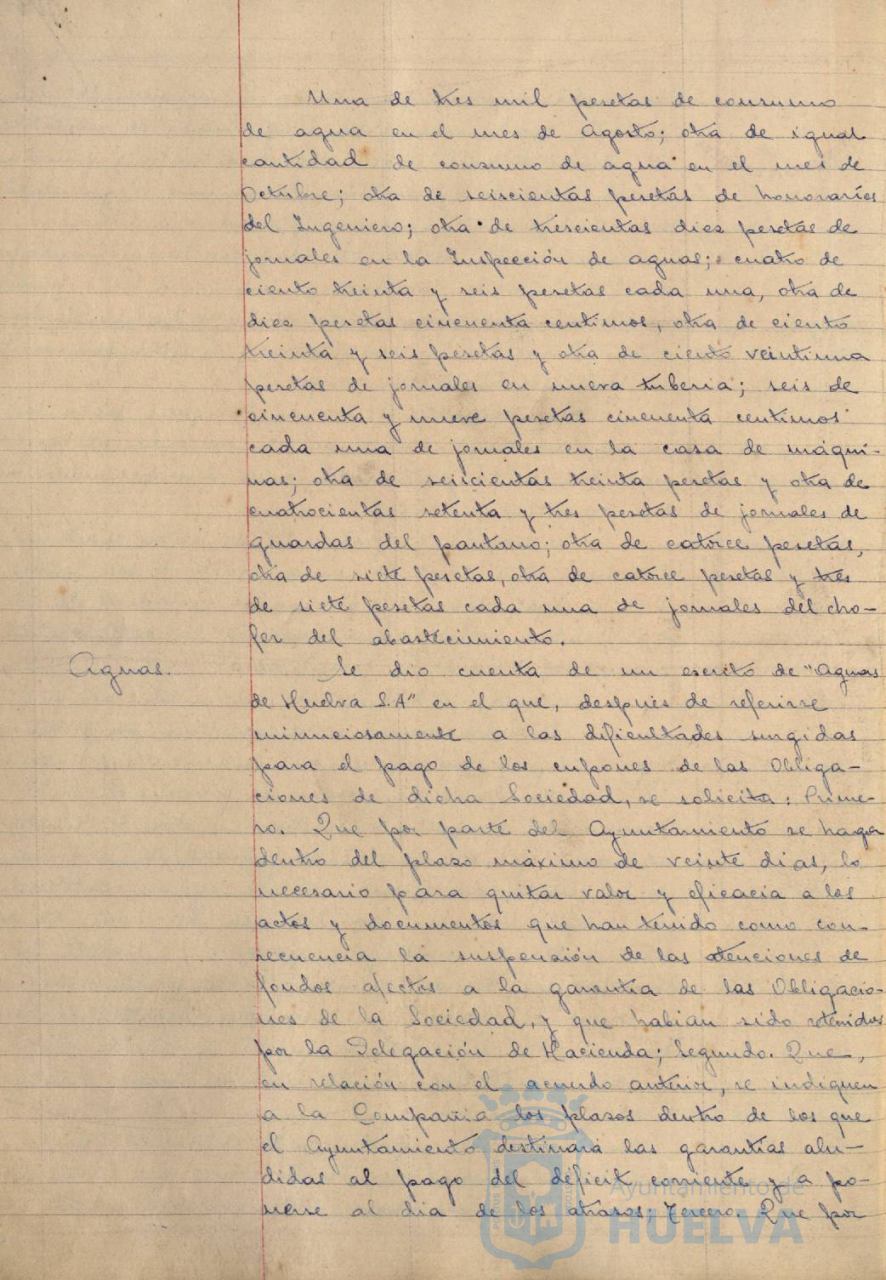 Una de tres mil pesetas de consumo
de agua en el mes de Agosto; otra de igual
cantidad de consumo de agua en el mes de
Octubre; otra de seiscientas pesetas de honorarios
del Ingeniero; otra de trescientas diez pesetas de
jornales en la Inspección de aguas; cuatro de
ciento treinta y seis pesetas cada una, otra de
diez pesetas cincuenta centimos, otra de ciento
treinta y seis pesetas y otra de ciento veintiuna
pesetas de jornales en nueva tuberia; seis de
cincuenta y nueve pesetas cincuenta centimos
cada una de jornales en la casa de máqui-
nas; otra de seiscientas treinta pesetas y otra de
cuatrocientas setenta y tres pesetas de jornales de
guardas del pantano; otra de catorce pesetas,
otra de siete pesetas, otra de catorce pesetas y tres
de siete pesetas cada una de jornales del cho-
fer del abastecimiento.
Aguas. Se dio cuenta de un escrito de "Aguas
de Huelva S.A" en el que, después de referirse
minuciosamente a las dificultades surgidas
para el pago de los cupones de las Obliga-
ciones de dicha Sociedad, se solicita: Prime-
ro. Que por parte del Ayuntamiento se haga
dentro del plazo máximo de veinte dias, lo
necesario para quitar valor y eficacia a los
actos y documentos que han tenido como con-
secuencia la suspensión de las atenciones de
fondos afectos a la garantia de las Obligacio-
nes de la Sociedad, y que habian sido retenidos
por la Delegación de Hacienda; Segundo. Que,
en relación con el acuerdo anterior, se indiquen
a la Compañia los plazos dentro de los que
el Ayuntamiento destinará las garantías alu-
didas al pago del déficit corriente y a po-
nerse al dia de los atrasos; Tercero. Que por
Ayuntamiento de
HUELVA